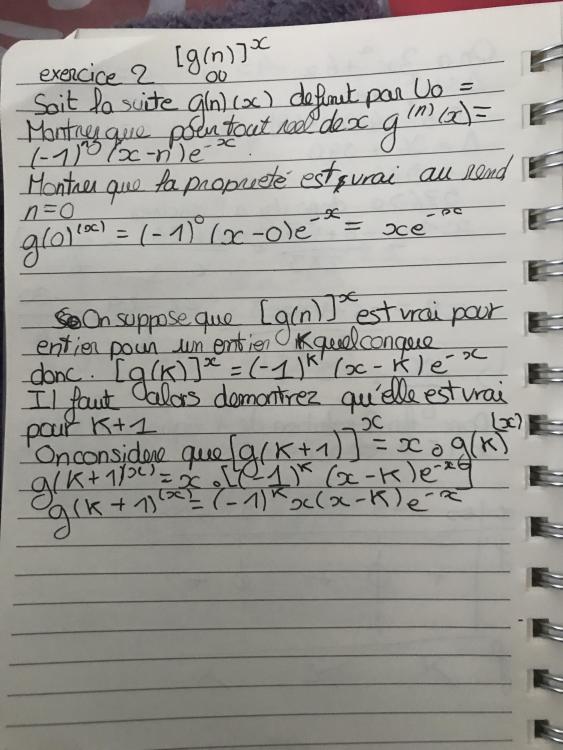 exercice 2 [g(n)]^x
Soit la suite g(n)(x) definit par U0 =
Montrer que pour tout reel de x g^(n)(x) =
(-1)^n (x-n)e^-x.
Montrer que la propriété est vrai au rend
n=0
g(0)^(x) = (-1)^0 (x-0)e^-x = xe^-x
On suppose que [g(n)]^x est vrai pour
entier pour un entier K quelconque
donc. [g(K)]^x = (-1)^K (x-K)e^-x
Il faut alors demontrez qu'elle est vrai
pour K+1
On considere que [g(K+1)]^x = x∘g(K)^(x)
g(K+1)^(x) = x∘[(-1)^K (x-K)e^-x]
g(K+1)^(x) = (-1)^K x(x-K)e^-x